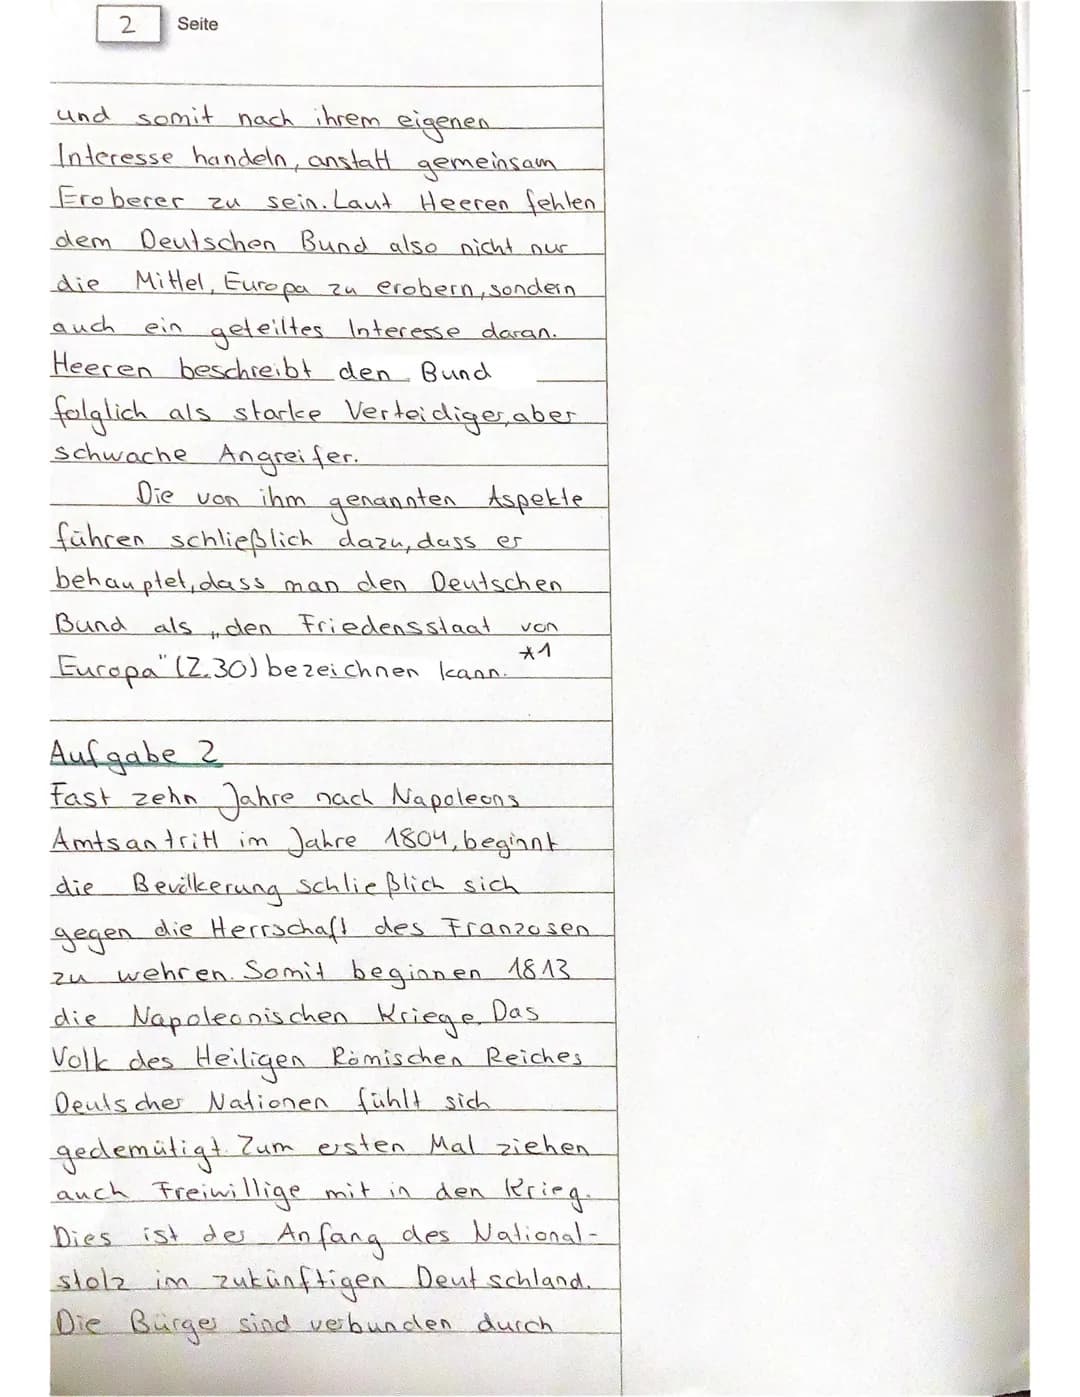 2 Seite
und somit nach ihrem eigenen
Interesse handeln, anstatt gemeinsam
Eroberer zu sein. Laut Heeren fehlen
dem Deutschen Bund also nicht nur
die Mittel, Europa zu erobern, sondern
auch ein geteiltes Interesse daran.
Heeren beschreibt den Bund
folglich als starke Verteidiger, aber
schwache Angreifer.
Die von ihm genannten Aspekte
führen schließlich dazu, dass er
behauptet, dass man den Deutschen
Bund als „den Friedensstaat von
Europa" (Z.30) bezeichnen kann. *1
Aufgabe 2
Fast zehn Jahre nach Napoleons
Amtsantritt im Jahre 1804, beginnt
die Bevölkerung schließlich sich
gegen die Herrschaft des Franzosen
zu wehren. Somit beginnen 1813
die Napoleonischen Kriege. Das
Volk des Heiligen Römischen Reiches
Deutscher Nationen fühlt sich
gedemütigt. Zum ersten Mal ziehen
auch Freiwillige mit in den Krieg.
Dies ist der Anfang des National-
stolz im zukünftigen Deutschland.
Die Bürger sind verbunden durch